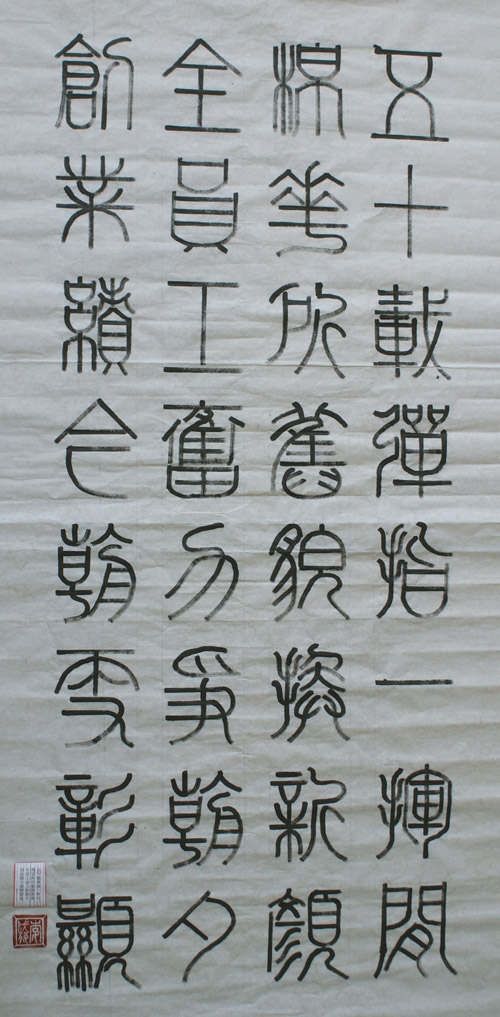 五十載彈指一揮間
棉花所舊貌換新顏
全員工奮力爭朝夕
創業績今朝更彰顯